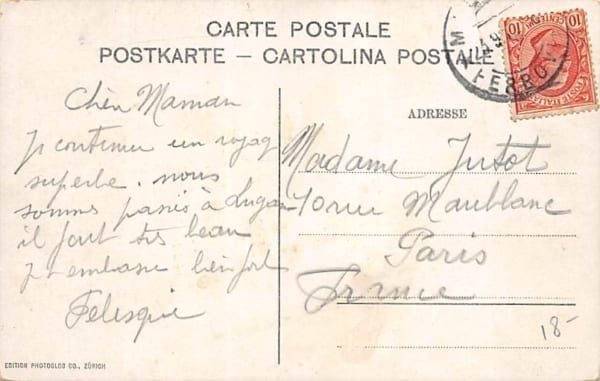 CARTE POSTALE
POSTKARTE – CARTOLINA POSTALE
ADRESSE
Chèr Maman
Je continue un voyag
superbe. nous
sommes passés à Lugan
il fait très beau
Je t embrasse bien fort
Madame Jutot
10 rue Maublanc
Paris
France
18-
EDITION PHOTOGLOB CO., ZÜRICH
10
10
POSTE ITALIANE
FERROVIA